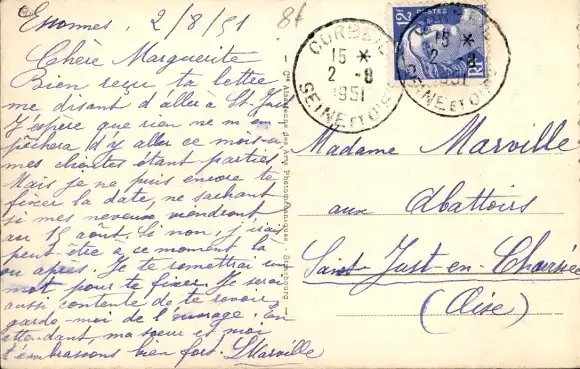 Essonnes 2/8/51
8f
Chère Marguerite
Bien reçu ta lettre
me disant d'aller à St Just
J'espère que rien ne m'em-
pêchera d'y aller ce mois-ci
mes clientes étant parties.
Mais je ne puis encore te
fixer la date, ne sachant
si mes neveux viendront
au 15 août. Si non, j'irais
peut-être à ce moment là
ou après. Je te remettrai un
mot pour te fixer. Je serai
aussi contente de te revoir
garde-moi de l'ouvrage. En
attendant, ma soeur et moi
t'embrassons bien fort. Marville
Cie des Arts Photomécaniques - Strasbourg
12F
POSTES
RF
CORBEIL
15 *
2 - 8
1951
SEINE ET OISE
CORBEIL
15 *
2 - 8
1951
SEINE ET OISE
Madame Marville
aux Abattoirs
Saint Just-en-Chaussée
(Oise)